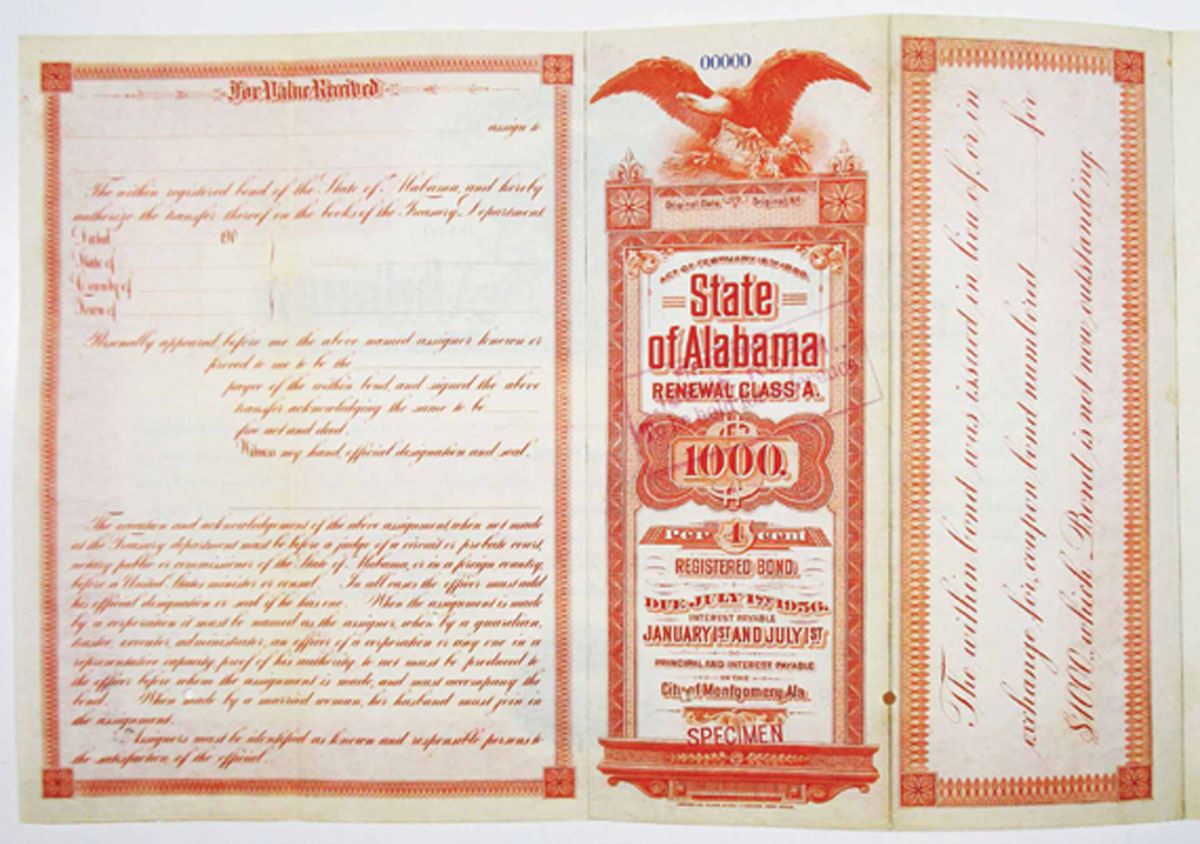 For Value Received
assign to
The within registered bond of the State of Alabama, and hereby
authorize the transfer thereof on the books of the Treasury Department.
Dated 190
State of
County of
Town of
Personally appeared before me the above named assignor known or
proved to me to be the
payee of the within bond, and signed the above
transfer acknowledging the same to be
free act and deed.
Witness my hand, official designation and seal.
The execution and acknowledgement of the above assignment, when not made
at the Treasury department must be before a judge of a circuit or probate court,
notary public or commissioner of the State of Alabama, or in a foreign country,
before a United States minister or consul. In all cases the officer must add
his official designation or seal if he has one. When the assignment is made
by a corporation it must be named as the assignor, when by a guardian,
trustee, executor, administrator, an officer of a corporation or any one in a
representative capacity, proof of his authority to act must be produced to
the officer before whom the assignment is made, and must accompany the
bond. When made by a married woman, her husband must join in
the assignment.
Assignors must be identified as known and responsible persons to
the satisfaction of the official.
00000
Original Date. Original No.
ACT OF FEBRUARY
State
of Alabama
RENEWAL CLASS A.
1000.
Per 4 cent
REGISTERED BOND.
DUE JULY 1ST, 1956.
INTEREST PAYABLE
JANUARY 1ST AND JULY 1ST
PRINCIPAL AND INTEREST PAYABLE
IN THE
City of Montgomery, Ala.
SPECIMEN
The within bond was issued in lieu of, or in
exchange for, coupon bond numbered for
$1000, which Bond is not now outstanding.